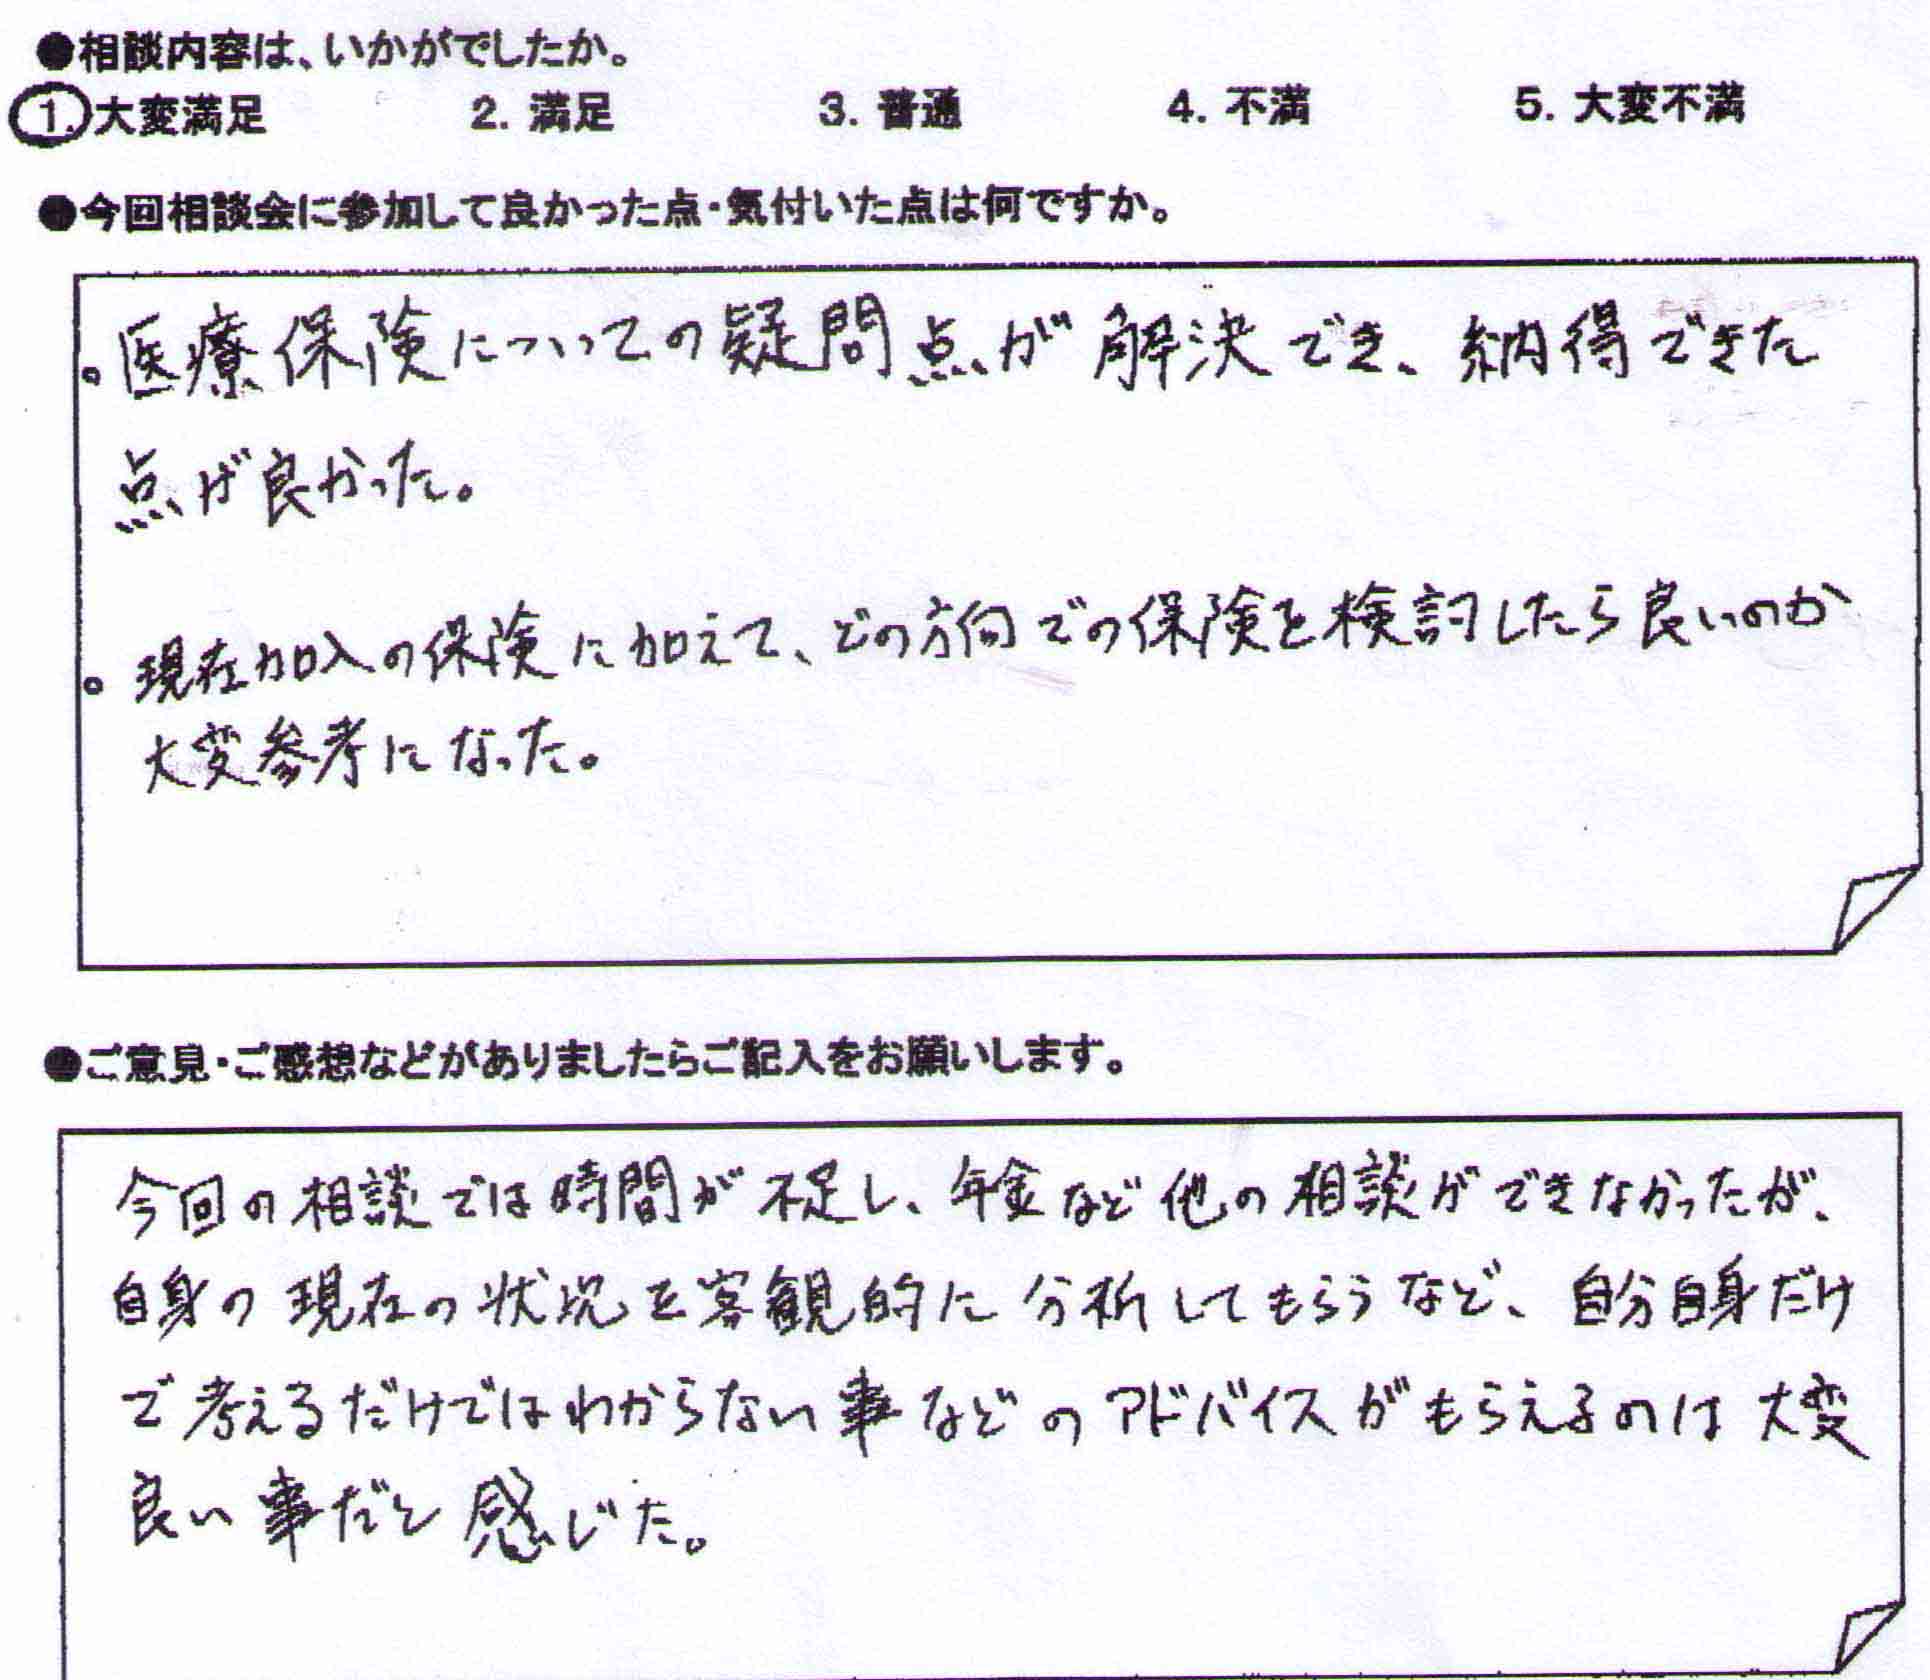 ●相談内容は、いかがでしたか。
1. 大変満足 2. 満足 3. 普通 4. 不満 5. 大変不満
●今回相談会に参加して良かった点・気付いた点は何ですか。
。医療保険についての疑問点が解決でき、納得できた
点が良かった。
。現在加入の保険に加えて、どの方向での保険を検討したら良いのか
大変参考になった。
●ご意見・ご感想などがありましたらご記入をお願いします。
今回の相談では時間が不足し、年金など他の相談ができなかったが、
自身の現在の状況を客観的に分析してもらうなど、自分自身だけ
で考えるだけではわからない事などのアドバイスがもらえるのは大変
良い事だと感じた。